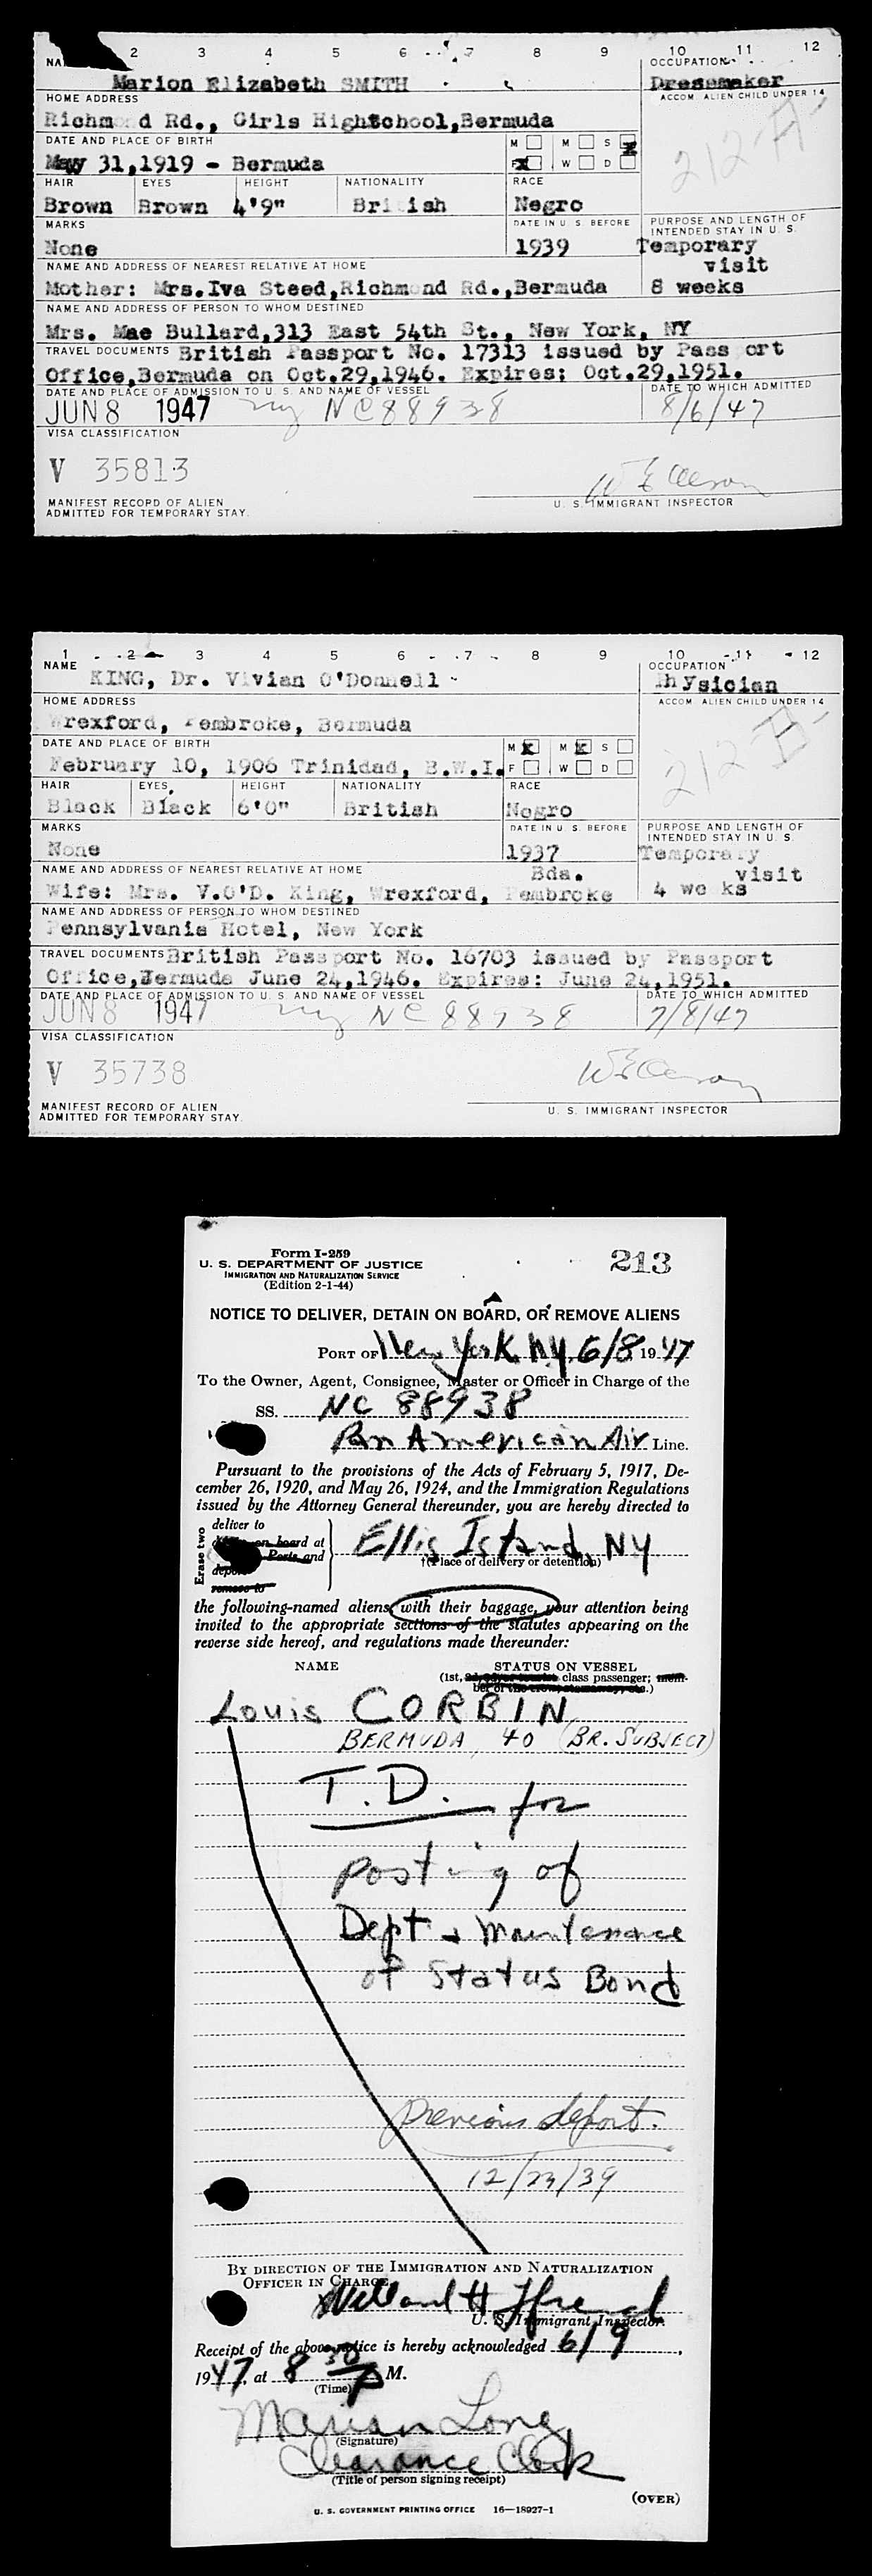 2 3 4 5 6 7 8 9 10 11 12
NA
Marion Elizabeth SMITH
OCCUPATION
Dressmaker
HOME ADDRESS
ACCOM. ALIEN CHILD UNDER 14
Richm nd Rd., Girls Highschool,Bermuda
212-A-
DATE AND PLACE OF BIRTH
M M S x
May 31,1919 - Bermuda
F x W D
HAIR EYES HEIGHT NATIONALITY RACE
Brown Brown 4'9" British Negro
MARKS DATE IN U. S. BEFORE PURPOSE AND LENGTH OF
INTENDED STAY IN U. S.
None 1939 Temporary
visit
NAME AND ADDRESS OF NEAREST RELATIVE AT HOME
Mother: Mrs.Iva Steed,Richmond Rd.,Bermuda 8 weeks
NAME AND ADDRESS OF PERSON TO WHOM DESTINED
Mrs. Mae Bullard,313 East 54th St., New York, NY
TRAVEL DOCUMENTS British Passport No. 17313 issued by Pass ort
Office,Bermuda on Oct.29,1946. Expires; Oct.29,1951.
DATE AND PLACE OF ADMISSION TO U. S. AND NAME OF VESSEL DATE TO WHICH ADMITTED
JUN 8 1947 ny NC 88938 8/6/47
VISA CLASSIFICATION
V 35813
MANIFEST RECORD OF ALIEN
ADMITTED FOR TEMPORARY STAY.
U. S. IMMIGRANT INSPECTOR
1 2 3 4 5 6 7 8 9 10 11 12
NAME
KING, Dr. Vivian O'Donnell
OCCUPATION
Physician
HOME ADDRESS
ACCOM. ALIEN CHILD UNDER 14
Wrexford, Pembroke, Bermuda
212-B-
DATE AND PLACE OF BIRTH
M x M x S
February 10, 1906 Trinidad, B.W.I.
F W D
HAIR EYES HEIGHT NATIONALITY RACE
Black Black 6'0" British Negro
MARKS DATE IN U. S. BEFORE PURPOSE AND LENGTH OF
INTENDED STAY IN U. S.
None 1937 Temporary
visit
NAME AND ADDRESS OF NEAREST RELATIVE AT HOME Bda.
Wife: Mrs. V.O'D. King, Wrexford, Pembroke 4 we ks
NAME AND ADDRESS OF PERSON TO WHOM DESTINED
Pennsylvania Hotel, New York
TRAVEL DOCUMENTS British Passport No. 16703 issued by Passport
Office,Bermuda June 24,1946. Expires: June 24,1951.
DATE AND PLACE OF ADMISSION TO U. S. AND NAME OF VESSEL DATE TO WHICH ADMITTED
JUN 8 1947 ny NC 88938 7/8/47
VISA CLASSIFICATION
V 35738
MANIFEST RECORD OF ALIEN
ADMITTED FOR TEMPORARY STAY.
U. S. IMMIGRANT INSPECTOR
Form I-259
U. S. DEPARTMENT OF JUSTICE
IMMIGRATION AND NATURALIZATION SERVICE
(Edition 2-1-44)
213
NOTICE TO DELIVER, DETAIN ON BOARD, OR REMOVE ALIENS
PORT OF New York NY 6/8 1947
To the Owner, Agent, Consignee, Master or Officer in Charge of the
SS. NC 88938
Pan American Air Line.
Pursuant to the provisions of the Acts of February 5, 1917, De-
cember 26, 1920, and May 26, 1924, and the Immigration Regulations
issued by the Attorney General thereunder, you are hereby directed to
Erase two
deliver to
on board at
Ports and
remove to
Ellis Island, NY
†(Place of delivery or detention)
the following-named aliens with their baggage, your attention being
invited to the appropriate sections of the statutes appearing on the
reverse side hereof, and regulations made thereunder:
NAME STATUS ON VESSEL
(1st, class passenger; mem-
ber of the crew, stowaway, etc.)
Louis CORBIN
BERMUDA, 40 (BR. SUBJECT)
T.D. for
posting of
Dept & Maintenance
of Status Bond
previous deport.
12/23/39
BY DIRECTION OF THE IMMIGRATION AND NATURALIZATION
OFFICER IN CHARGE
U. S. Immigrant Inspector.
Receipt of the above notice is hereby acknowledged 6/9,
1947, at 8 30 P M.
(Time)
Marian Long
(Signature)
Clearance Clerk
(Title of person signing receipt)
(OVER)
U. S. GOVERNMENT PRINTING OFFICE 16—18927-1